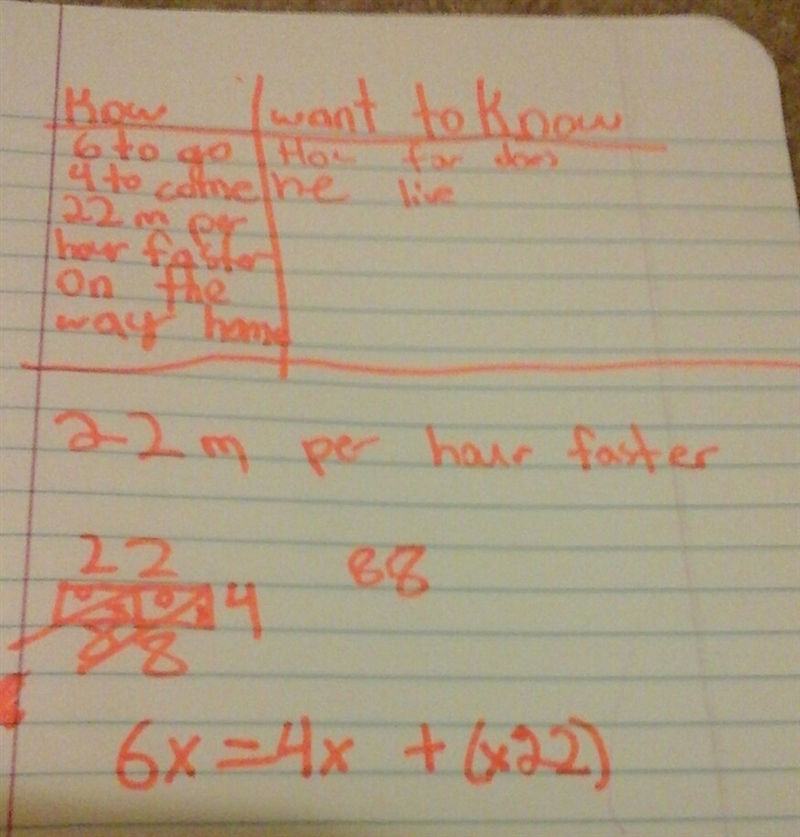 Know want to Know
6 to go How far does
4 to come he live
22 m per
hour faster
On the
way home
22 m per hour faster
22 88
4
88
6x = 4x + (x22)